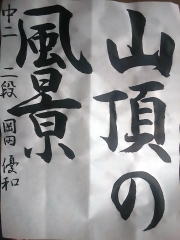 山頂の
風景
中二 二段 岡田優和